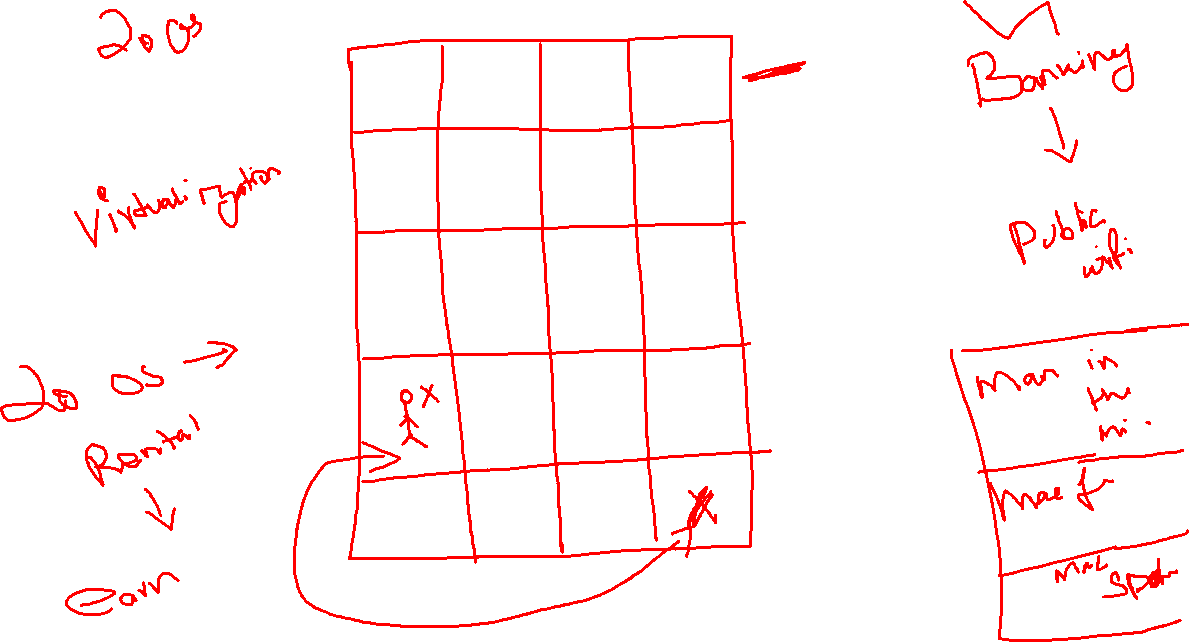 20 OS
Virtualization
20 OS
Rental
Earn
X
X
Banking
Public
wifi
Man in
the
mi.
Mac
Mac